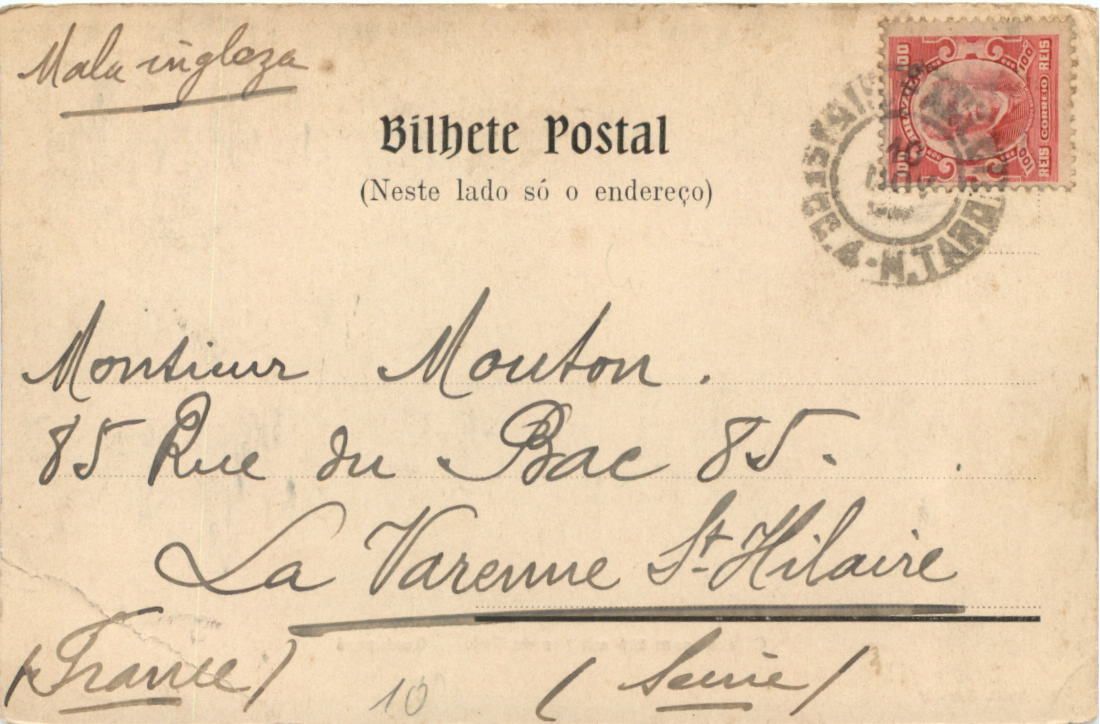 Mala ingleza
Bilhete Postal
(Neste lado só o endereço)
100 REIS CORREIO 100 REIS
10
Monsieur Mouton.
85 Rue du Bac 85.
La Varenne St. Hilaire
(France) (Seine)
10